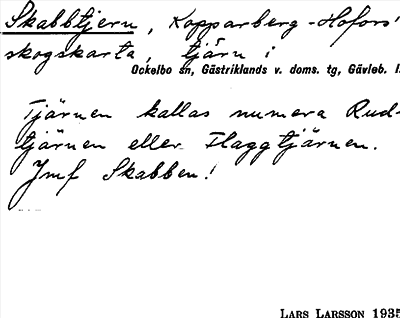 Skabbtjern, Kopparberg-Hofors'
skogskarta, tjärn i
Ockelbo sn, Gästriklands v. doms. tg, Gävleb. l.
Tjärnen kallas numera Rud-
tjärnen eller Flaggtjärnen.
Jmf Skabben!
LARS LARSSON 1935